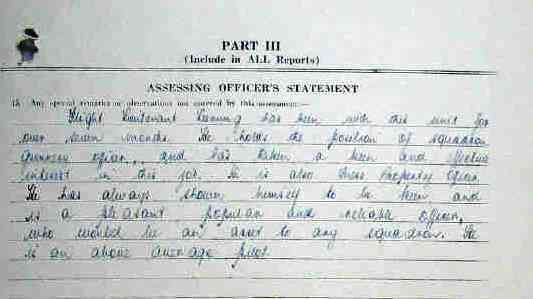 PART III
(Include in ALL Reports)
ASSESSING OFFICER'S STATEMENT
15. Any special remarks or observations not covered by this assessment:—
Flight Lieutenant has been with this unit for
over seven months. He holds the position of squadron
gunnery officer, and has taken a keen and effective
interest in this job. He is also Mess Property Officer.
He has always shown himself to be keen and
is a pleasant popular and reliable officer,
who would be an asset to any squadron. He
is an above average pilot